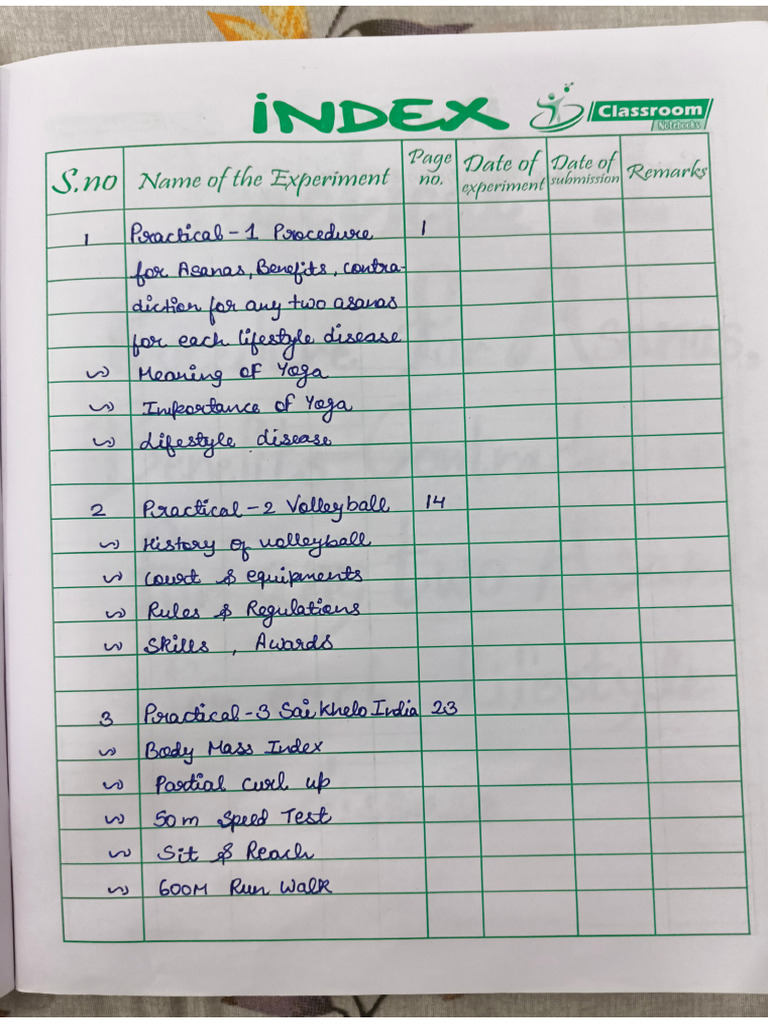 INDEX
Classroom
Notebooks
S.no Name of the Experiment Page no. Date of experiment Date of submission Remarks
1 Practical - 1 Procedure 1
for Asanas, Benefits, contra-
diction for any two asanas
for each lifestyle disease
Meaning of Yoga
Importance of Yoga
Lifestyle disease
2 Practical - 2 Volleyball 14
History of volleyball
Court & equipments
Rules & Regulations
Skills, Awards
3 Practical - 3 Sai Khelo India 23
Body Mass Index
Partial Curl up
50m Speed Test
Sit & Reach
600M Run Walk